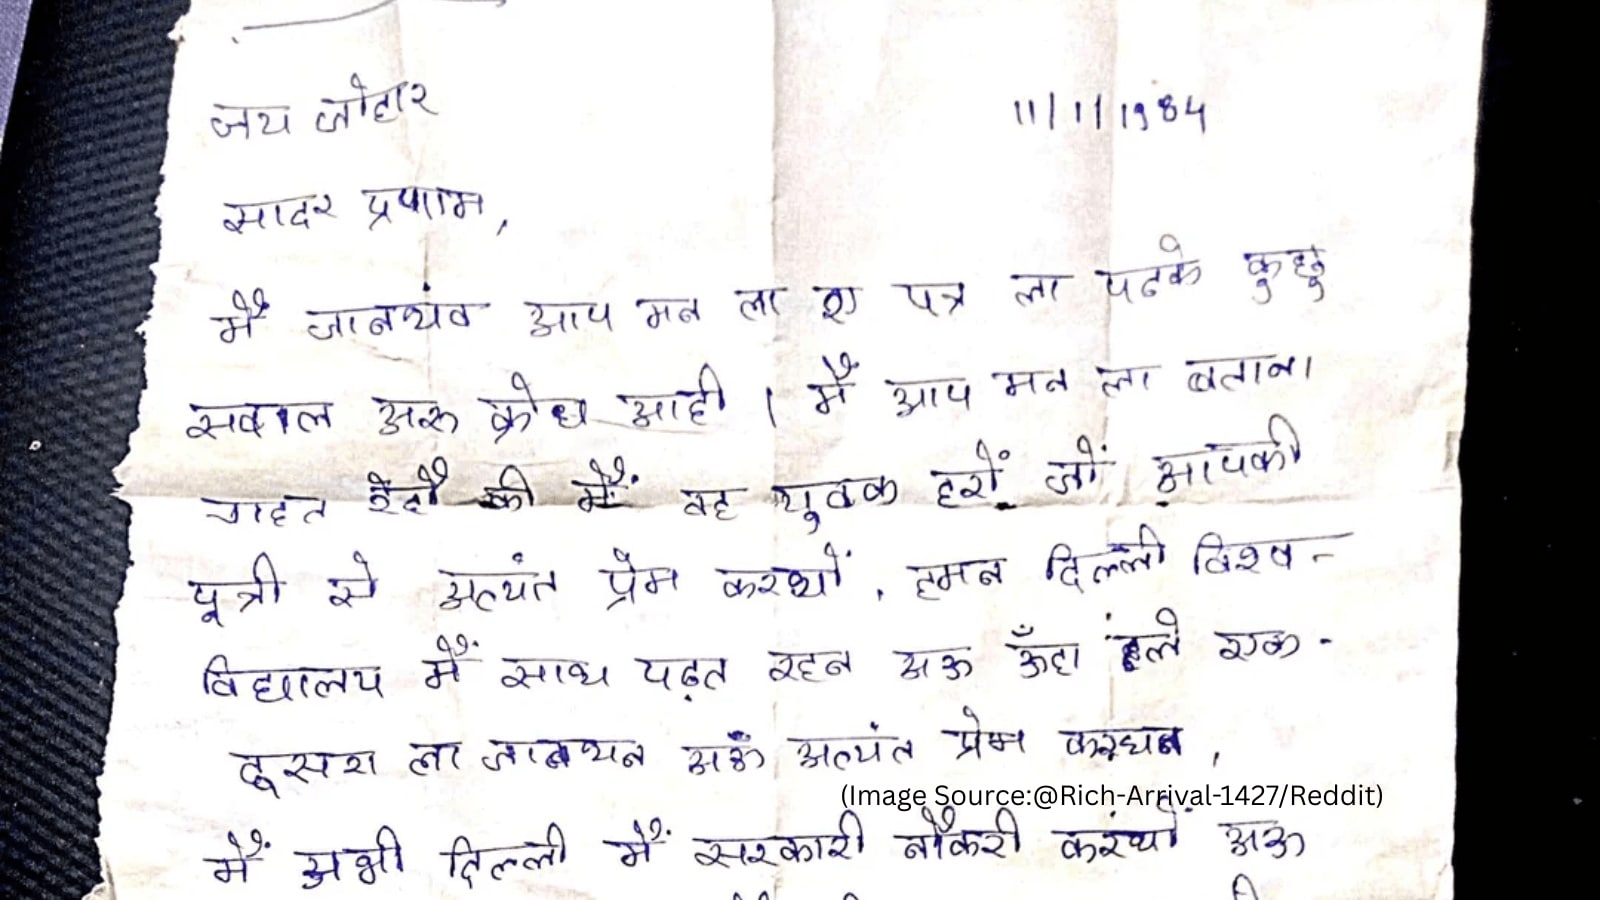 जय जोहार
11/11/1984
सादर प्रणाम,
मैं जानथंव आप मन ला ए पत्र ला पढके कुछु
सवाल अरु क्रोध आही । मैं आप मन ला बताना
चाहत की मैं वह युवक हरों जों आपकी
पूत्री से अत्यंत प्रेम करथों, हमन दिल्ली विश्व-
विद्यालय मैं साथ पढ़त रहन अऊ ऊँहा ले एक-
दूसरा ला जानथन अऊँ अत्यंत प्रेम करथन,
(Image Source:@Rich-Arrival-1427/Reddit)
मैं अभी दिल्ली मैं सरकारी नौकरी करंथों अऊ